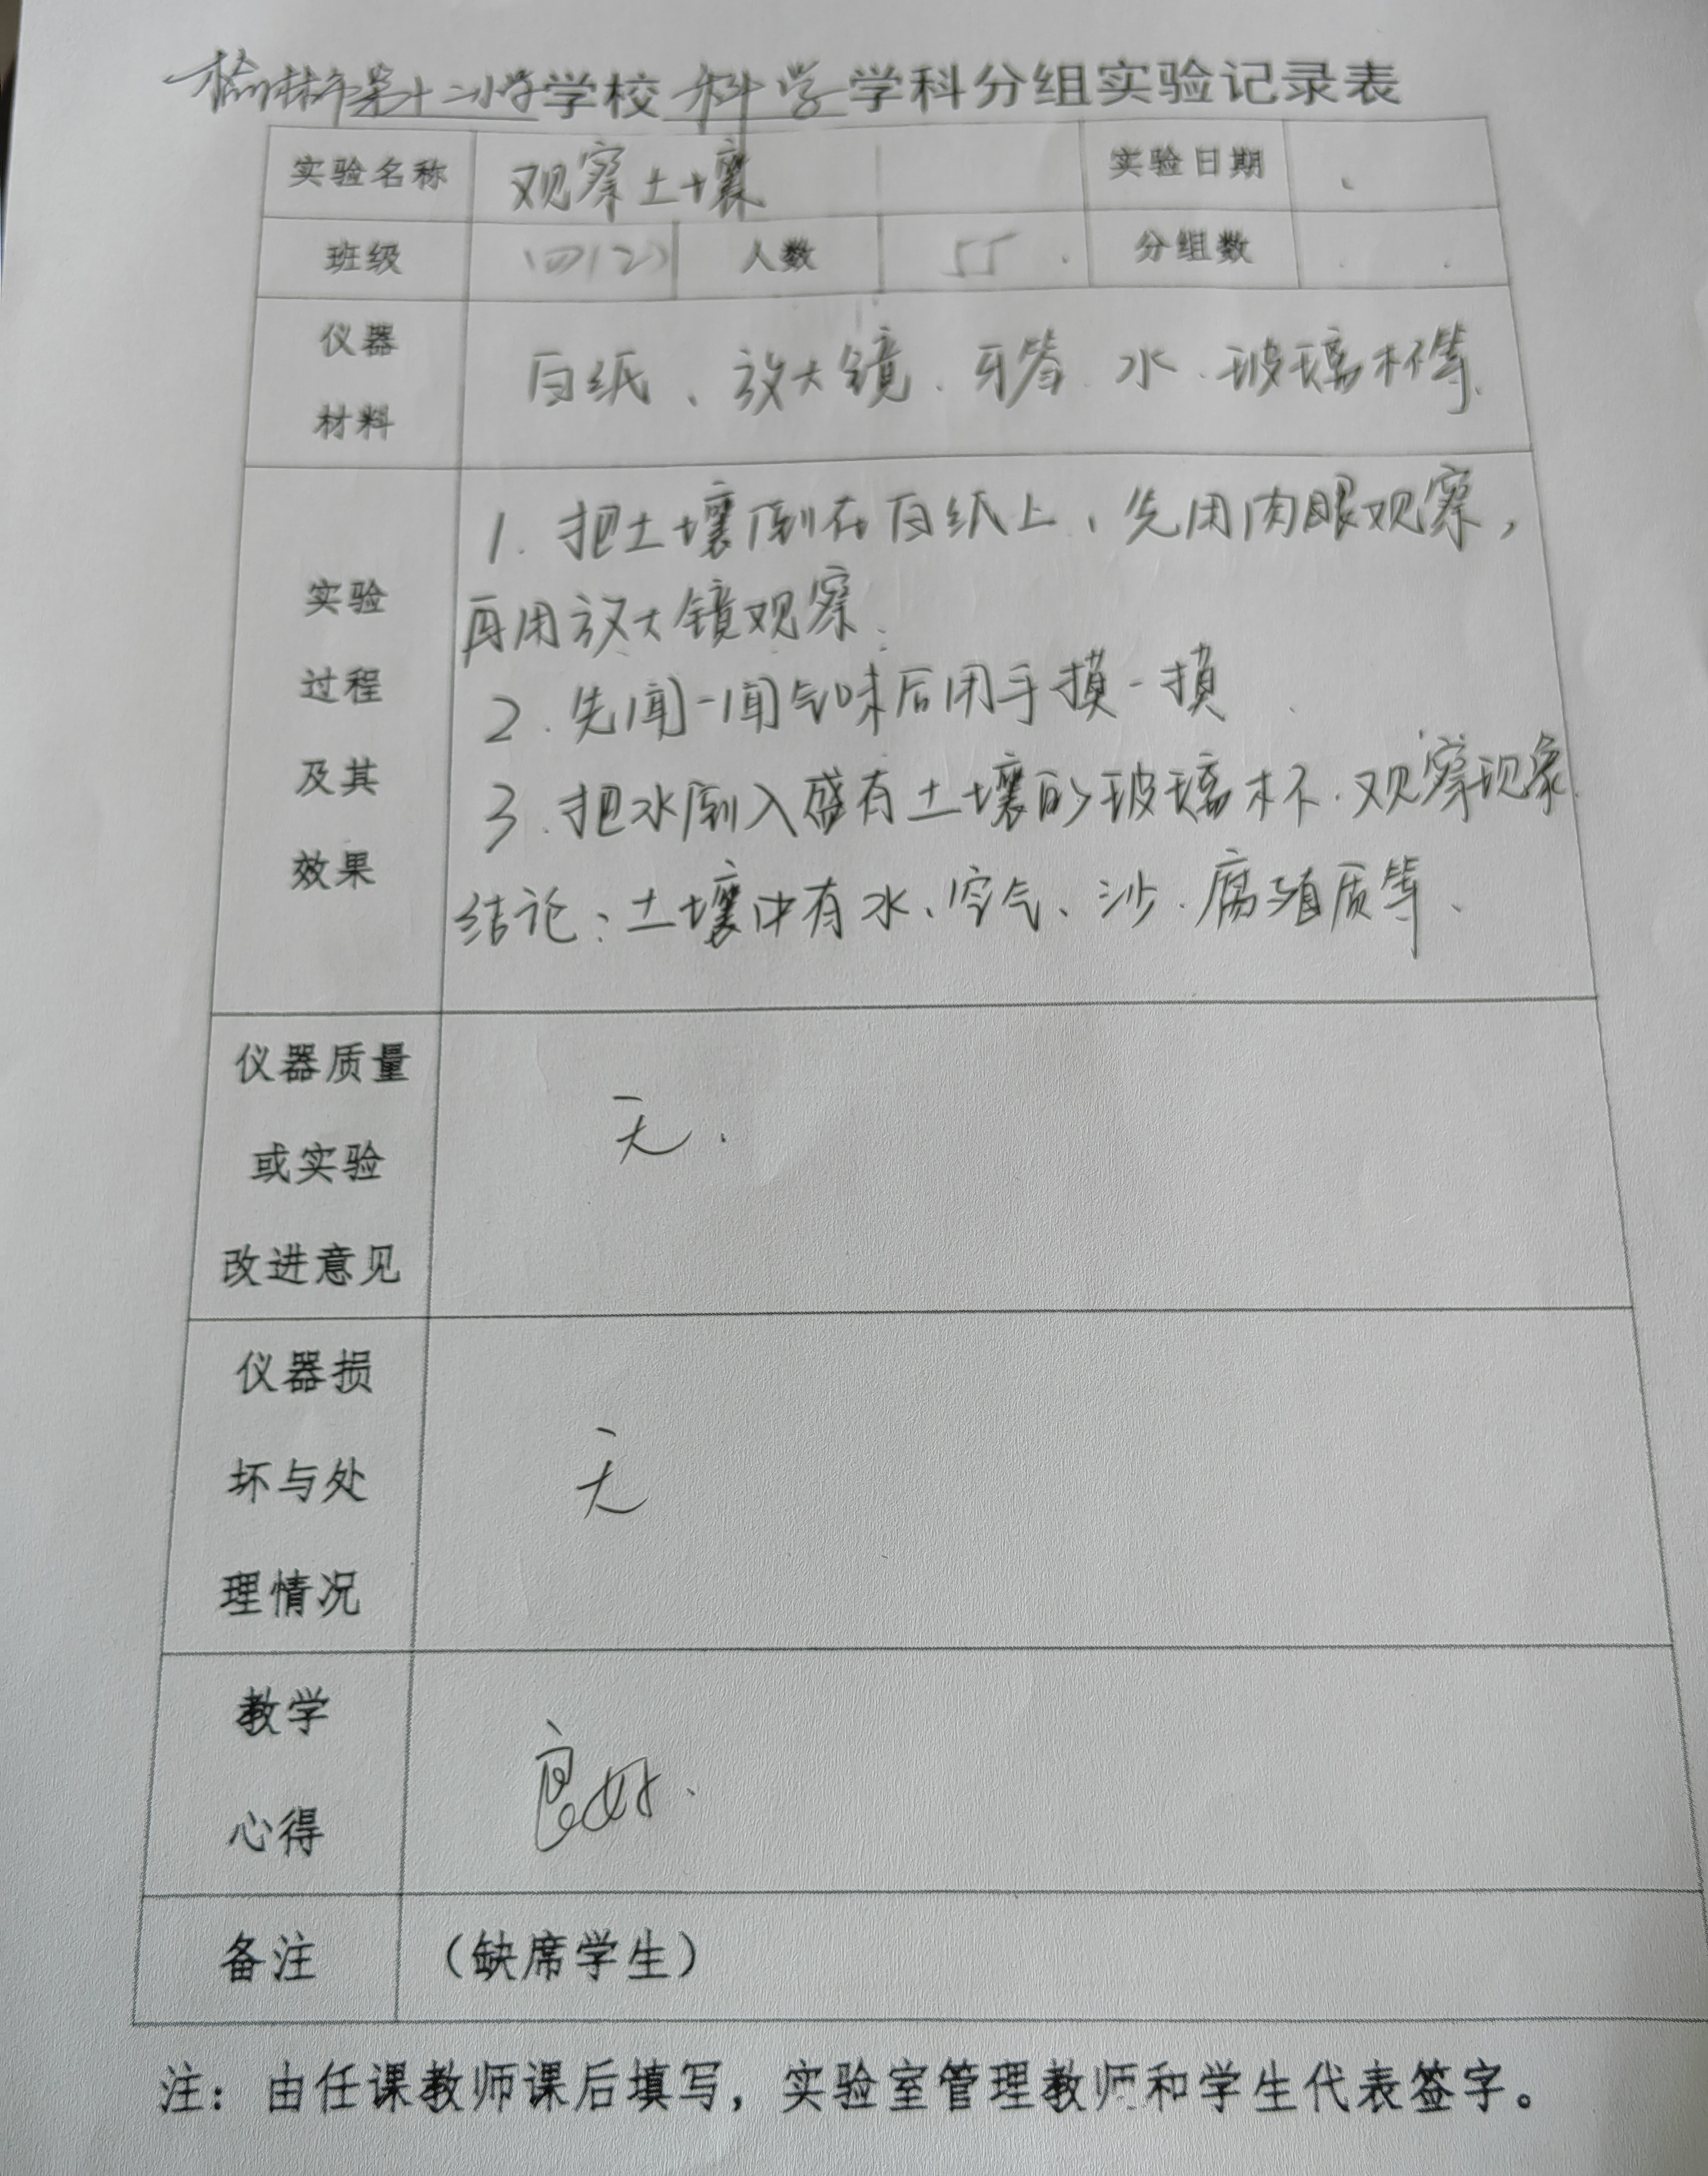 榆林市第十二小学学校科学学科分组实验记录表
实验名称 观察土壤 实验日期
班级 四(2) 人数 55 分组数
仪器
材料
白纸、放大镜、牙签、水、玻璃杯等.
实验
过程
及其
效果
1. 把土壤倒在白纸上,先用肉眼观察,
再用放大镜观察.
2. 先闻一闻气味后用手摸一摸
3. 把水倒入盛有土壤的玻璃杯.观察现象.
结论:土壤中有水、空气、沙、腐殖质等、
仪器质量
或实验
改进意见
无.
仪器损
坏与处
理情况
无
教学
心得
良好.
备注 (缺席学生)
注:由任课教师课后填写,实验室管理教师和学生代表签字。